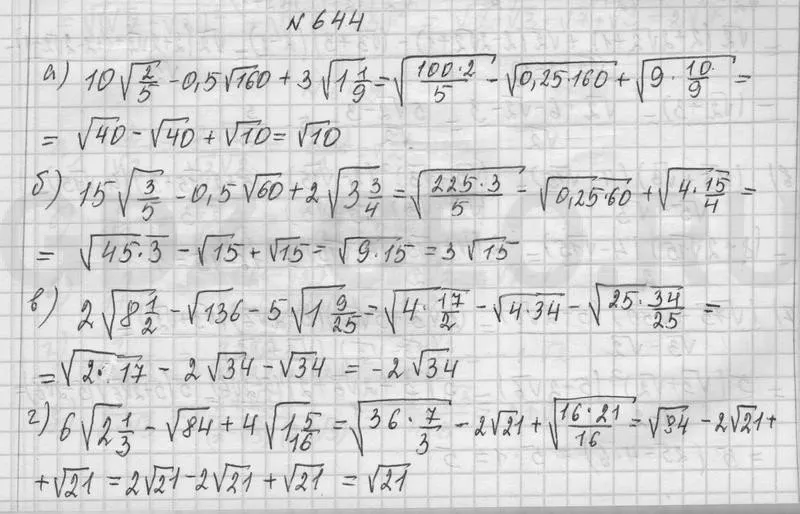 № 644
а) 10√(2/5) - 0,5√160 + 3√(1 1/9) = √(100·2/5) - √(0,25·160) + √(9·10/9) =
= √40 - √40 + √10 = √10
б) 15√(3/5) - 0,5√60 + 2√(3 3/4) = √(225·3/5) - √(0,25·60) + √(4·15/4) =
= √(45·3) - √15 + √15 = √(9·15) = 3√15
в) 2√(8 1/2) - √136 - 5√(1 9/25) = √(4·17/2) - √(4·34) - √(25·34/25) =
= √(2·17) - 2√34 - √34 = -2√34
г) 6√(2 1/3) - √84 + 4√(1 5/16) = √(36·7/3) - 2√21 + √(16·21/16) = √94 - 2√21 +
+ √21 = 2√21 - 2√21 + √21 = √21